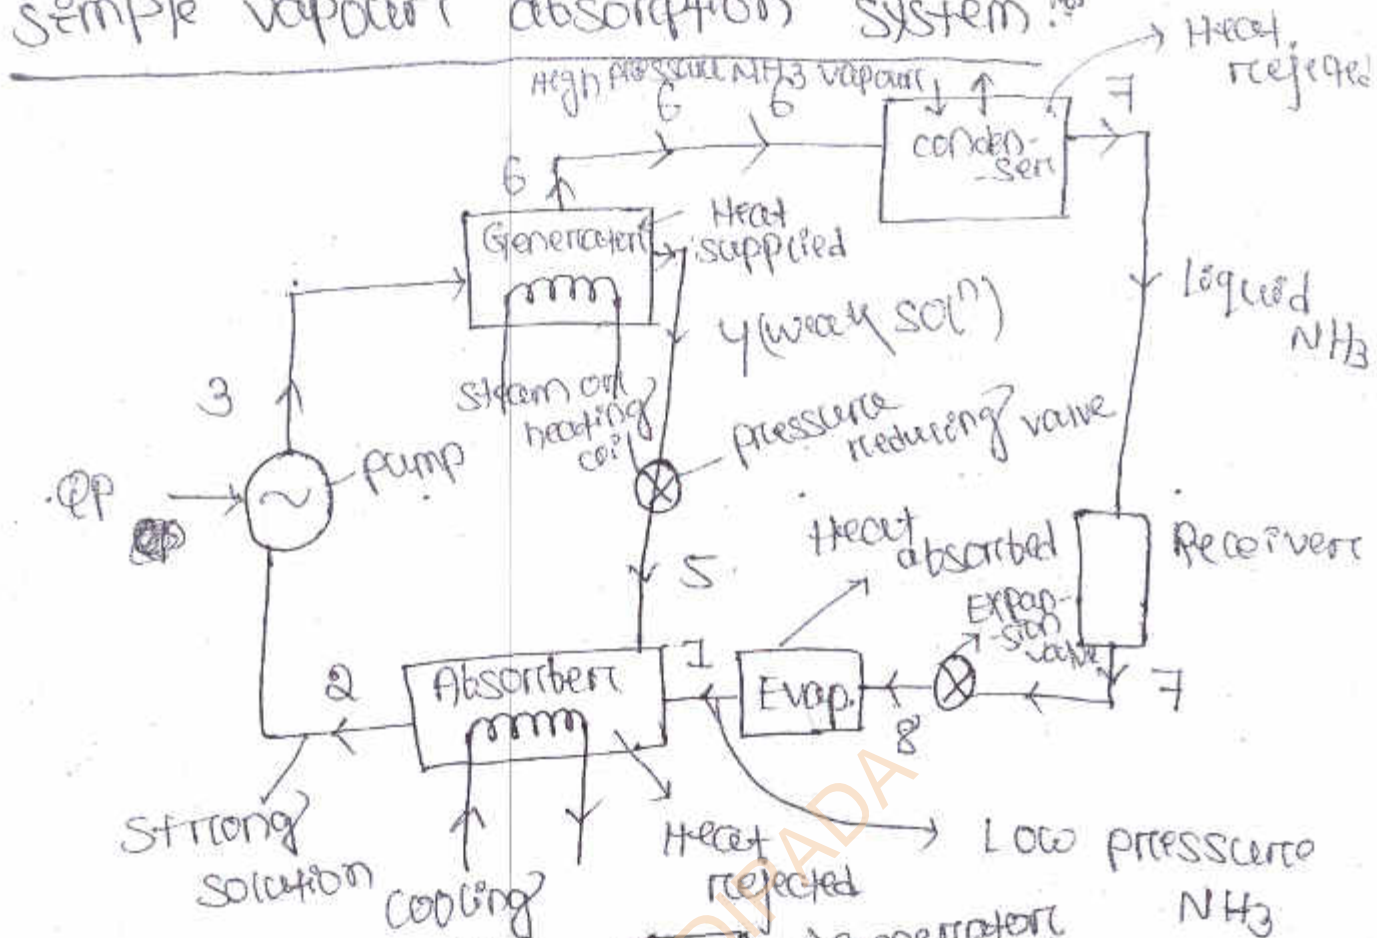 Simple vapour absorption system:-
Heat
rejected
High pressure NH3 vapour
6
6
7
conden-
-ser
6
Generator
Heat
supplied
Liquid
NH3
4 (weak sol^n)
3
Steam or
heating
coil
pressure
reducing valve
pump
QP
Heat
absorbed
Receiver
5
Expan-
-sion
valve
1
2
Absorber
Evap.
7
8
Strong
solution
cooling
Heat
rejected
Low pressure
NH3
generator
DIPADA